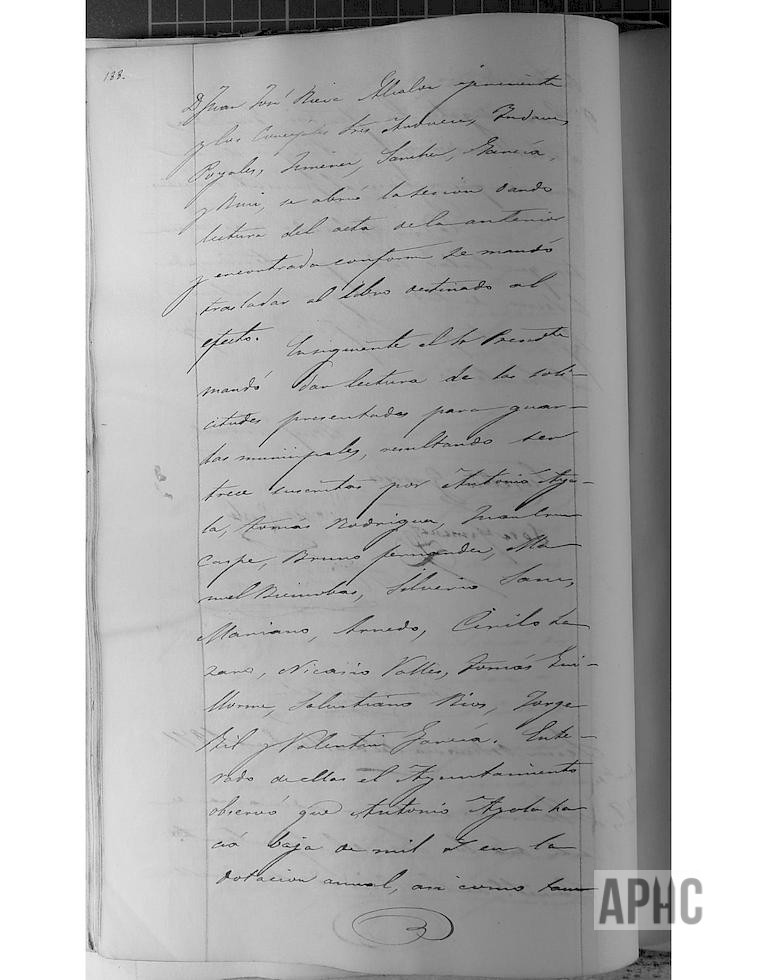 188.
D. Juan José Alcalde
y los Concejales Sres
Poyales, Jimenez, Sanchez, Garcia,
y Ruiz, se abrió la sesion dando
lectura del acta de la anterior
y encontrada conforme se mandó
trasladar al libro destinado al
efecto. el Sr Presidte
mandó dar lectura de las soli-
citudes presentadas para guar-
das municipales, resultando ser
trece suscritas por Antonio Aya-
la, Tomás Rodriguez, Juan Cruz
Caspe, Bruno Fernandez, Ma-
nuel Bienzobas, Silverio Sanz,
Mariano, Arnedo, Cirilo La-
zaro, Nicasio Valles, Tomás Gui-
llorme, Salustiano Rios, Jorge
Gil y Valentin Garcia. Ente-
rado de ellas el Ayuntamiento
observó que Antonio Ayala ha
cia baja de mil en la
dotacion anual, asi como tam
APHC